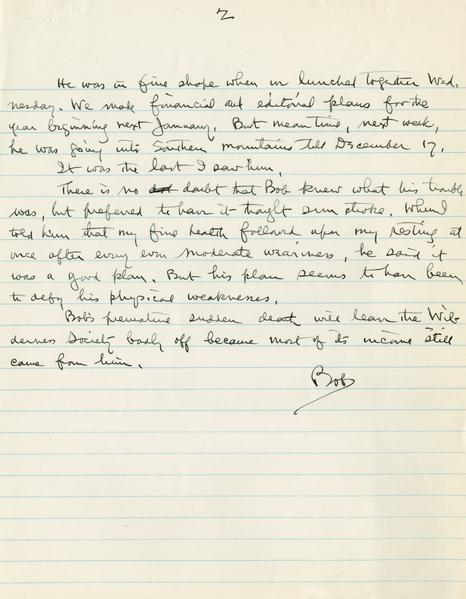 2
He was in fine shape when we lunched together Wed-
nesday. We made financial and editorial plans for the
year beginning next January. But meantime, next week,
he was going into Southern mountains till December 17.
It was the last I saw him.
There is no doubt that Bob knew what his trouble
was, but preferred to have it thought sun stroke. When I
told him that my fine health followed upon my resting at
once after every even moderate weariness, he said it
was a good plan. But his plan seems to have been
to defy his physical weaknesses.
Bob's premature sudden death will leave the Wil-
derness Society badly off because most of its income still
came from him.
Bob